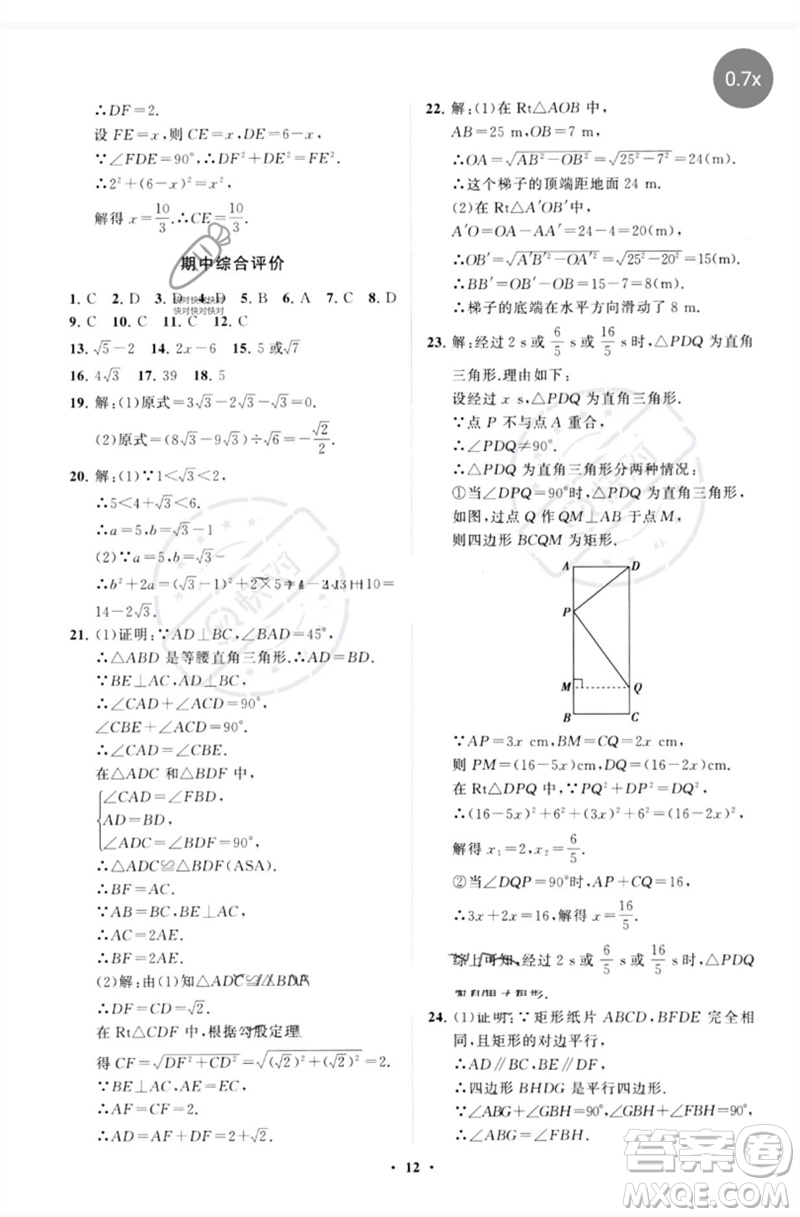 0.7x
∴DF=2.
设 FE=x,则 CE=x,DE=6-x.
∵∠FDE=90°,∴DF²+DE²=FE².
∴2²+(6-x)²=x²,
解得 x=10/3.∴CE=10/3.
期中综合评价
1. C 2. D 3. D 4. D 5. B 6. C 7. C 8. D
快对快对快对
快对快对快对
9. C 10. C 11. C 12. C
13. √5-2 14. 2x-6 15. 5或√7
16. 4√3 17. 39 18. 5
19. 解:(1)原式=3√3-2√3-√3=0.
(2)原式=(8√3-9√3)÷√6=-√2/2.
20. 解:(1)∵1<√3<2,
∴5<4+√3<6.
∴a=5,b=√3-1
(2)∵a=5,b=√3-1
∴b²+2a=(√3-1)²+2×5
10=
14-2√3.
21. (1)证明:∵AD⊥BC,∠BAD=45°,
∴△ABD 是等腰直角三角形.∴AD=BD.
∵BE⊥AC,AD⊥BC,
∴∠CAD+∠ACD=90°,
∠CBE+∠ACD=90°.
∴∠CAD=∠CBE.
在△ADC 和△BDF 中,
∠CAD=∠FBD,
AD=BD,
∠ADC=∠BDF=90°,
∴△ADC≌△BDF(ASA).
∴BF=AC.
∵AB=BC,BE⊥AC,
∴AC=2AE.
∴BF=2AE.
(2)解:由(1)知△ADC≌△BDF
∴DF=CD=√2.
在 Rt△CDF 中,根据勾股定理
得 CF=√(DF²+CD²)=√((√2)²+(√2)²)=2.
∵BE⊥AC,AE=EC,
∴AF=CF=2.
∴AD=AF+DF=2+√2.
22. 解:(1)在 Rt△AOB 中,
AB=25 m,OB=7 m,
∴OA=√(AB²-OB²)=√(25²-7²)=24(m).
∴这个梯子的顶端距地面 24 m.
(2)在 Rt△A′OB′中,
A′O=OA-A′A=24-4=20(m),
∴OB′=√(A′B′²-OA′²)=√(25²-20²)=15(m).
∴BB′=OB′-OB=15-7=8(m).
∴梯子的底端在水平方向滑动了 8 m.
23. 解:经过 2 s 或 6/5 s 或 16/5 s 时,△PDQ 为直角
三角形.理由如下:
设经过 x s,△PDQ 为直角三角形.
∵点 P 不与点 A 重合,
∴∠PDQ≠90°.
∴△PDQ 为直角三角形分两种情况:
①当∠DPQ=90°时,△PDQ 为直角三角形,
如图,过点 Q 作 QM⊥AB 于点 M,
则四边形 BCQM 为矩形.
A D
P
M Q
B C
∵AP=3x cm,BM=CQ=2x cm,
则 PM=(16-5x)cm,DQ=(16-2x)cm,
在 Rt△DPQ 中,∵PQ²+DP²=DQ²,
∴(16-5x)²+6²+(3x)²+6²=(16-2x)²,
解得 x₁=2,x₂=6/5.
②当∠DQP=90°时,AP+CQ=16,
∴3x+2x=16,解得 x=16/5.
综上可知,经过 2 s 或 6/5 s 或 16/5 s 时,△PDQ
为直角三角形.
24. (1)证明:∵矩形纸片 ABCD,BFDE 完全相
同,且矩形的对边平行,
∴AD∥BC,BE∥DF.
∴四边形 BHDG 是平行四边形.
∵∠ABG+∠GBH=∠GBH+∠FBH=90°,
∴∠ABG=∠FBH.
• 12 •
答案圈
MXQE.COM